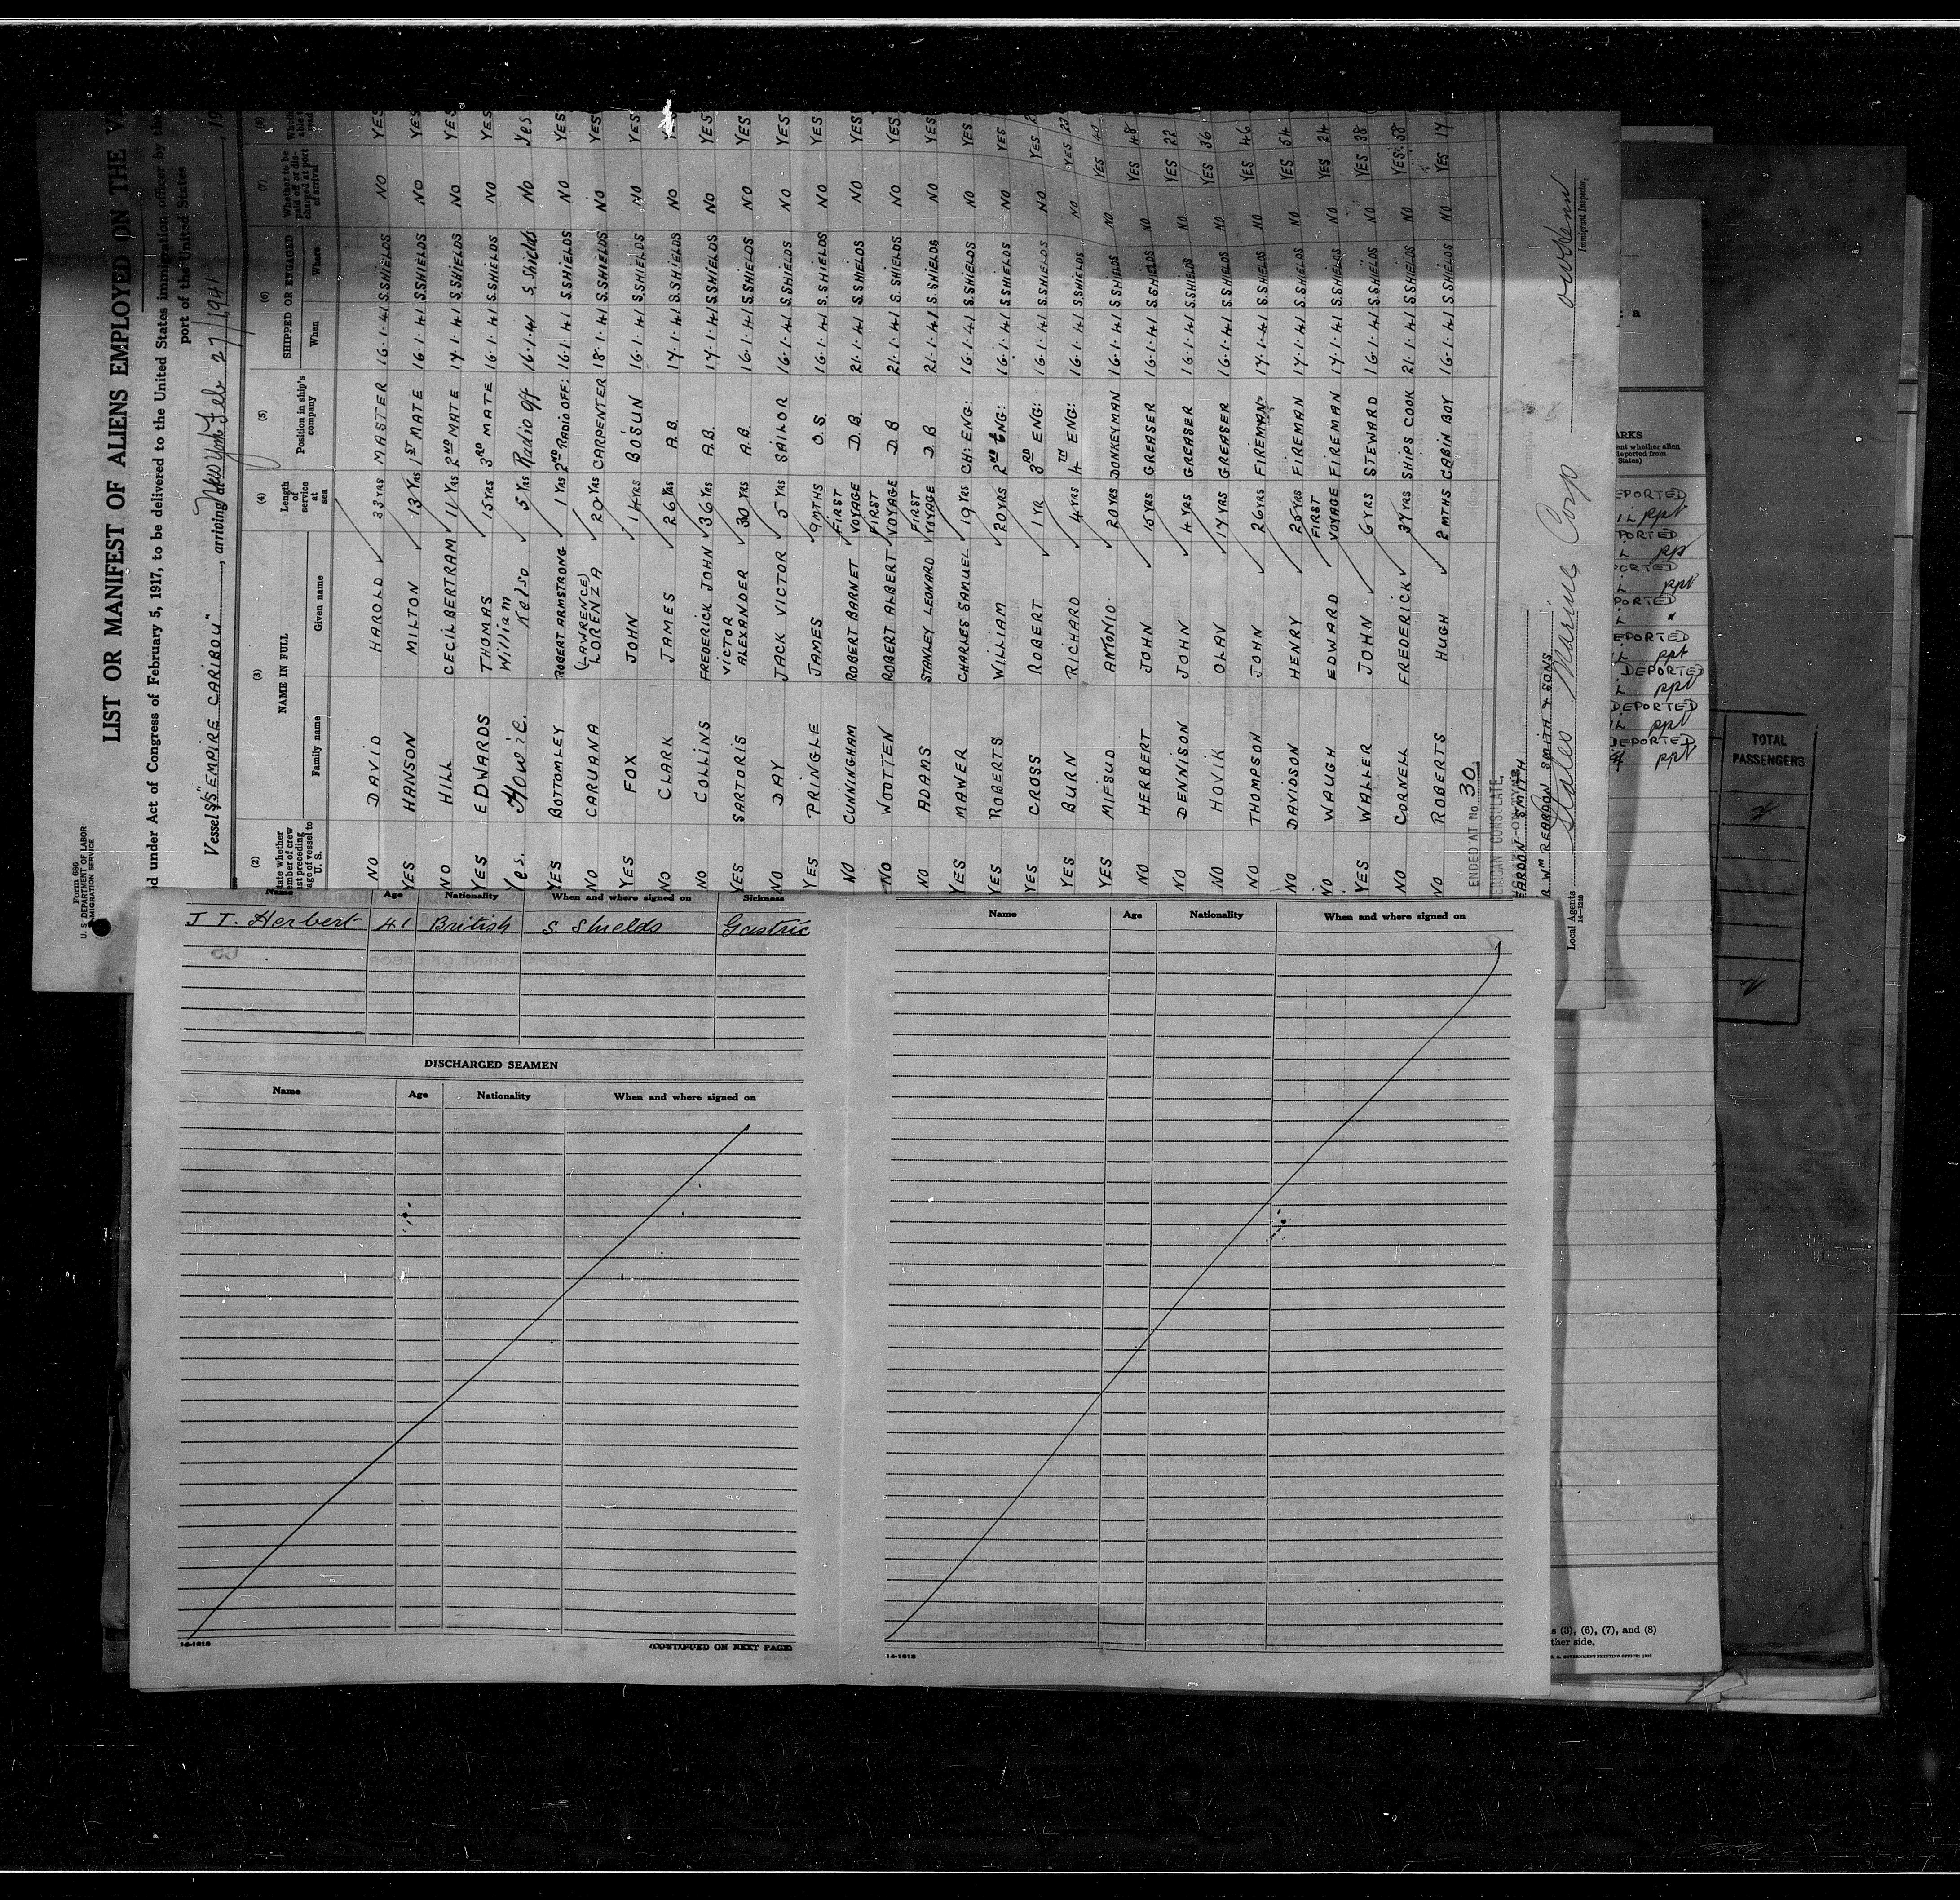 Form 680
U. S. DEPARTMENT OF LABOR
IMMIGRATION SERVICE
LIST OR MANIFEST OF ALIENS EMPLOYED ON THE
d under Act of Congress of February 5, 1917, to be delivered to the United States immigration officer by the
port of the United States
Vessel S/S "EMPIRE CARIBOU", arriving at New York Feb 27, 1941
(2) (3) (4) (5) (6) (7) (8)
NAME IN FULL
Family name Given name
Length of service at sea
Position in ship's company
SHIPPED OR ENGAGED
When Where
Whether to be paid off or discharged at port of arrival
NO DAVID HAROLD 33 YRS MASTER 16-1-41 S.SHIELDS NO YES
YES HANSON MILTON 13 YRS 1ST MATE 16-1-41 S.SHIELDS NO YES
NO HILL CECIL BERTRAM 11 YRS 2ND MATE 17-1-41 S.SHIELDS NO YES
YES EDWARDS THOMAS 15 YRS 3RD MATE 16-1-41 S.SHIELDS NO YES
Yes. Howie. William Kelso 5 Yrs Radio Off 16-1-41 S. Shields No Yes
YES BOTTOMLEY ROBERT ARMSTRONG 1 YRS 2ND RADIO OFF: 16-1-41 S.SHIELDS NO YES
NO CARUANA (LAWRENCE) LORENZA 20 YRS CARPENTER 18-1-41 S.SHIELDS NO YES
YES FOX JOHN 14 YRS BOSUN 16-1-41 S.SHIELDS NO YES
NO CLARK JAMES 26 YRS A.B. 17-1-41 S.SHIELDS NO YES
NO COLLINS FREDERICK JOHN 36 YRS A.B. 17-1-41 S.SHIELDS NO YES
YES SARTORIS VICTOR ALEXANDER 30 YRS A.B. 16-1-41 S.SHIELDS NO YES
NO DAY JACK VICTOR 5 YRS SAILOR 16-1-41 S.SHIELDS NO YES
YES PRINGLE JAMES 9 MTHS O.S. 16-1-41 S.SHIELDS NO YES
NO CUNNINGHAM ROBERT BARNET FIRST VOYAGE D.B. 21-1-41 S.SHIELDS NO YES
NO WOOTTEN ROBERT ALBERT FIRST VOYAGE D.B 21-1-41 S.SHIELDS NO YES
NO ADAMS STANLEY LEONARD FIRST VOYAGE D.B 21-1-41 S.SHIELDS NO YES
YES MAWER CHARLES SAMUEL 19 YRS CH: ENG: 16-1-41 S.SHIELDS NO YES
YES ROBERTS WILLIAM 20 YRS 2ND ENG: 16-1-41 S.SHIELDS NO YES
YES CROSS ROBERT 1 YR 3RD ENG: 16-1-41 S.SHIELDS NO YES
YES BURN RICHARD 4 YRS 4TH ENG: 16-1-41 S.SHIELDS NO YES 23
YES MIFSUD ANTONIO 20 YRS DONKEYMAN 16-1-41 S.SHIELDS NO YES 40
NO HERBERT JOHN 15 YRS GREASER 16-1-41 S.SHIELDS NO YES 48
NO DENNISON JOHN 4 YRS GREASER 16-1-41 S.SHIELDS NO YES 22
NO HOVIK OLAV 17 YRS GREASER 16-1-41 S.SHIELDS NO YES 36
NO THOMPSON JOHN 26 YRS FIREMAN 17-1-41 S.SHIELDS NO YES 46
NO DAVIDSON HENRY 25 YRS FIREMAN 17-1-41 S.SHIELDS NO YES 54
NO WAUGH EDWARD FIRST VOYAGE FIREMAN 17-1-41 S.SHIELDS NO YES 24
YES WALLER JOHN 6 YRS STEWARD 16-1-41 S.SHIELDS NO YES 38
NO CORNELL FREDERICK 37 YRS SHIPS COOK 21-1-41 S.SHIELDS NO YES 58
NO ROBERTS HUGH 2 MTHS CABIN BOY 16-1-41 S.SHIELDS NO YES 17
ENDED AT No 30.
ERICAN CONSULATE,
EARDON SMITH
R Wm REARDON SMITH & SONS
Local Agents States Marine Corp
Immigrant Inspector.
Name Age Nationality When and where signed on Sickness
J T. Herbert 41 British S. Shields Gastric
DISCHARGED SEAMEN
Name Age Nationality When and where signed on
14-1618
(CONTINUED ON NEXT PAGE)
Name Age Nationality When and where signed on
14-1618
ARKS
EPORTED
IL ppt
PORTED
L ppt
PORTED
L ppt
PORTED
L "
EPORTED
IL ppt
DEPORTED
L ppt
DEPORTED
IL ppt
DEPORTED
ppt
TOTAL PASSENGERS
s (3), (6), (7), and (8)
ther side.